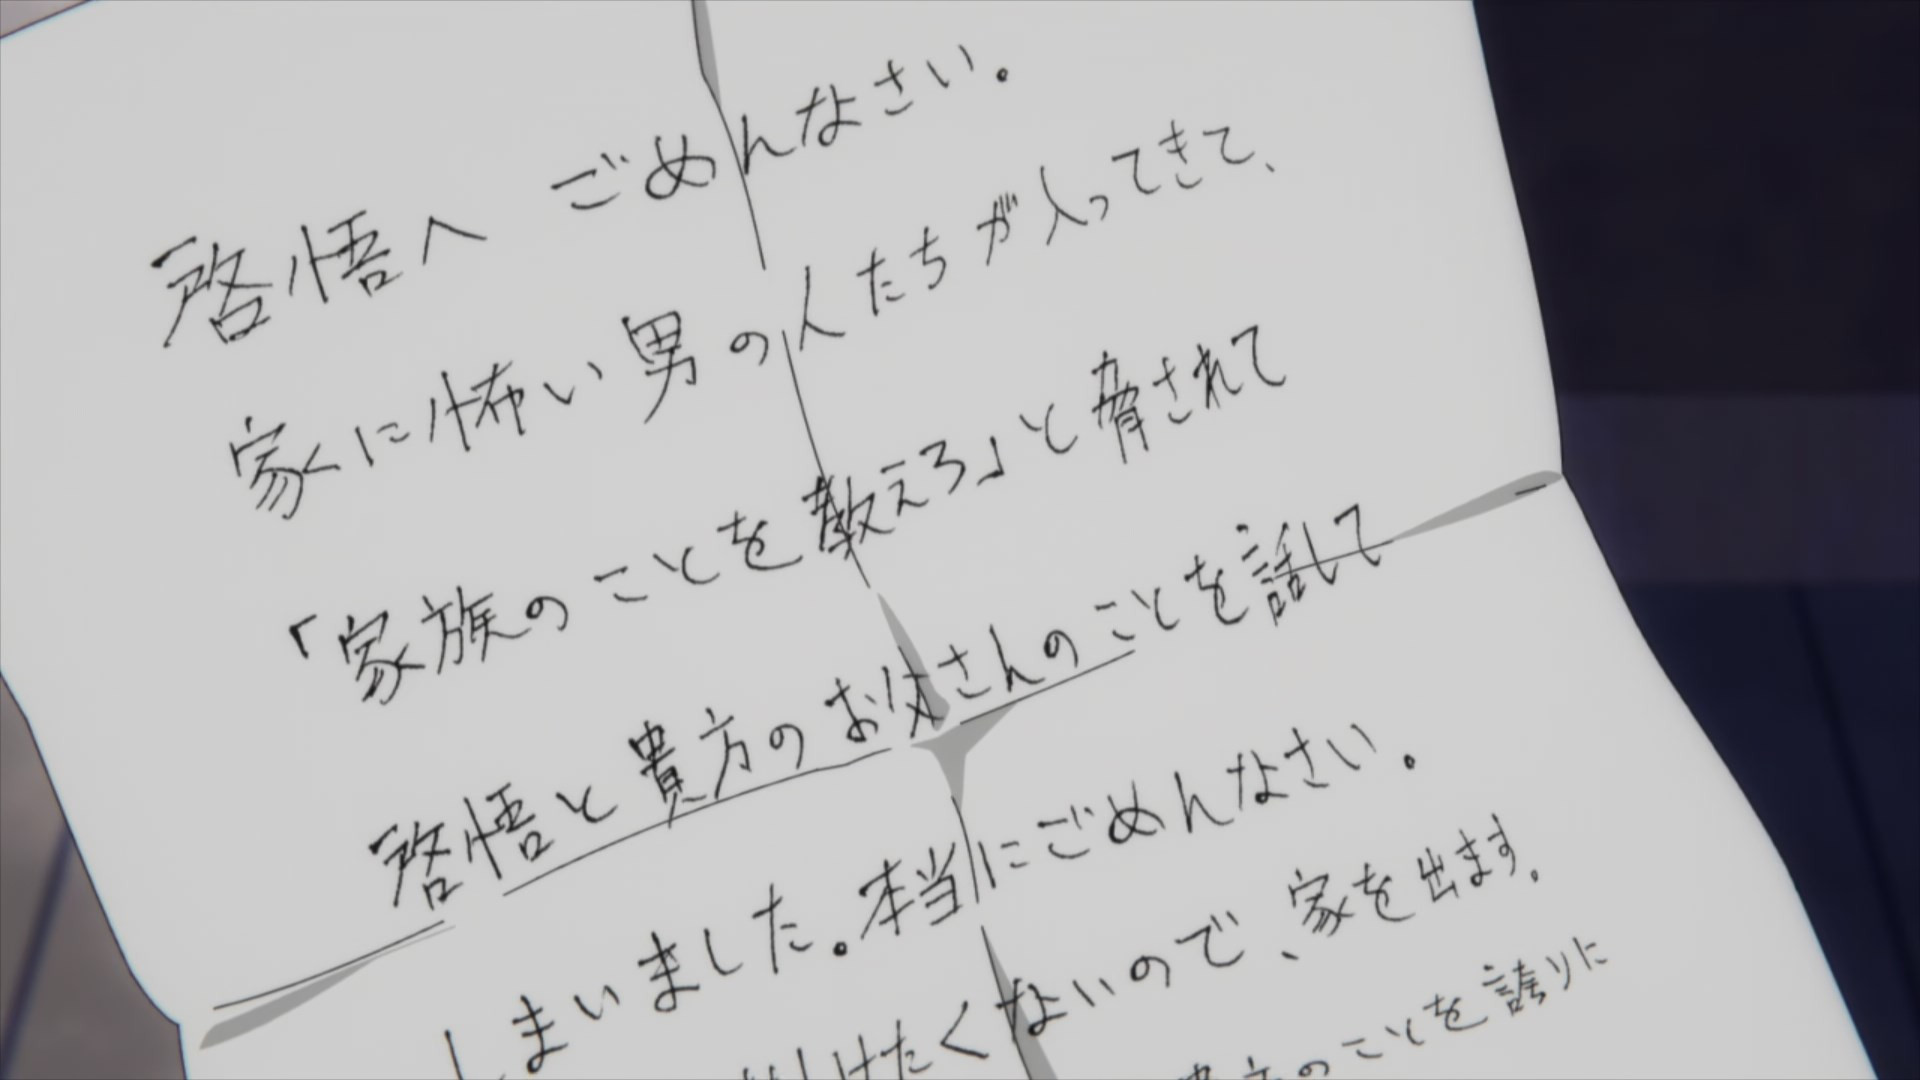 啓悟へ ごめんなさい。
家に怖い男の人たちが入ってきて、
「家族のことを教えろ」と脅されて
啓悟と貴方のお父さんのことを話して
しまいました。本当にごめんなさい。
けたくないので、家を出ます。
のことを誇りに